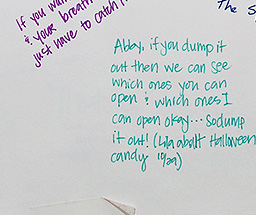 If you wan
& your breath
just have to catch i
the s
Abby, if you dump it
out then we can see
which ones you can
open & which ones I
can open okay... So dump
it out! (Lila abt Halloween
candy 10/29)